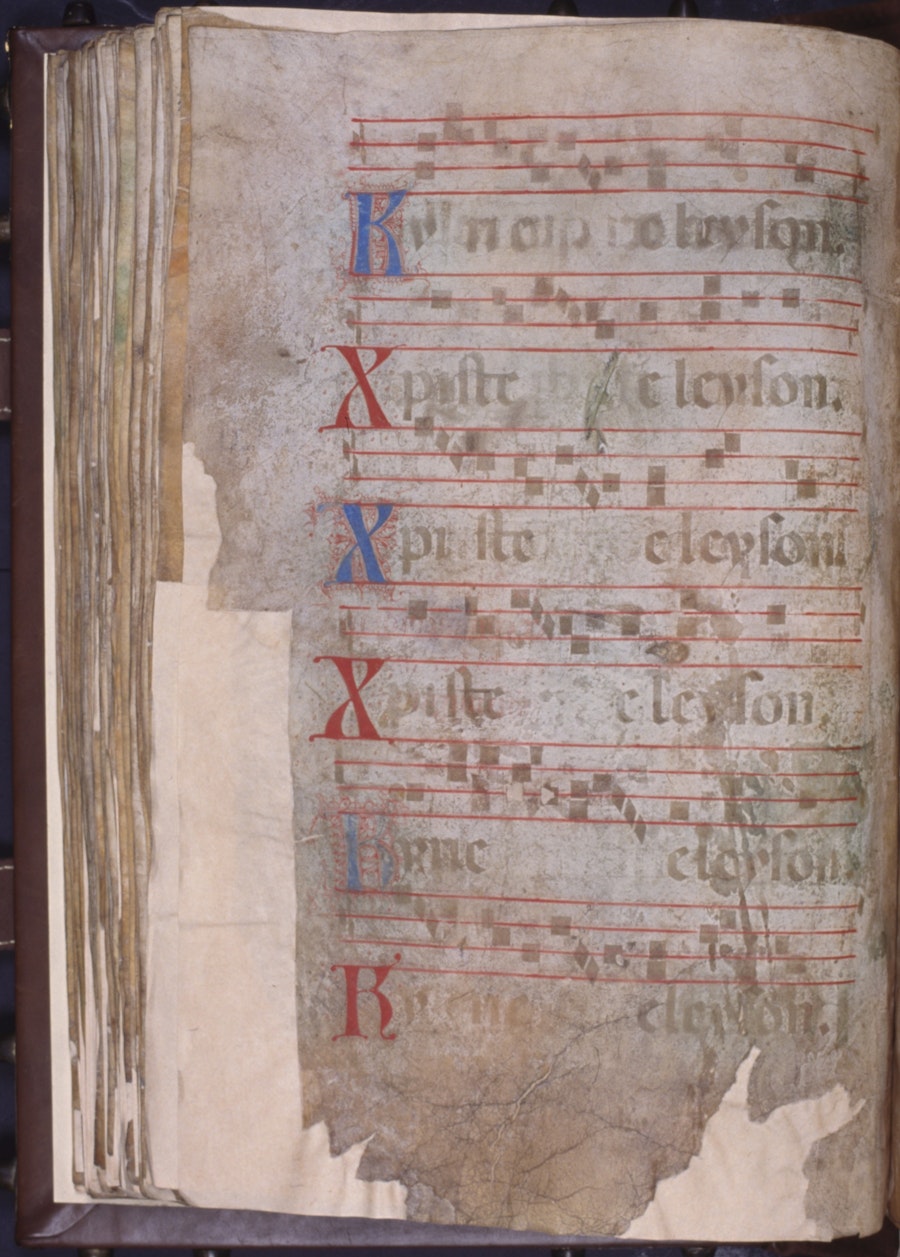 Xpiste eleyson.
Xpiste eleyson
Xpiste eleyson.
Kyrie eleyson.
Kyrie eleyson.